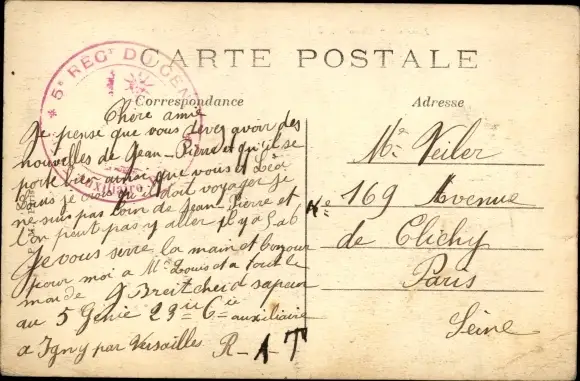 CARTE POSTALE
Correspondance
Adresse
5e REGt DU GÉNIE
Auxiliaire
Chère amie
Je pense que vous devez avoir des
nouvelles de Jean-Pierre et qu'il se
porte bien ainsi que vous et Léa
Louis je crois qu'il doit voyager je
ne suis pas loin de Jean-Pierre et
l'on peut pas y aller il y a 5 à 6
Je vous serre la main et bonjour
pour moi a Mr Louis et a tout le
monde J Breitcheid sapeur
au 5 Génie 23ie 6ie auxiliaire
a Igny par Versailles R-A-T
Me Veiler
No 169 Avenue
de Clichy
Paris
Seine